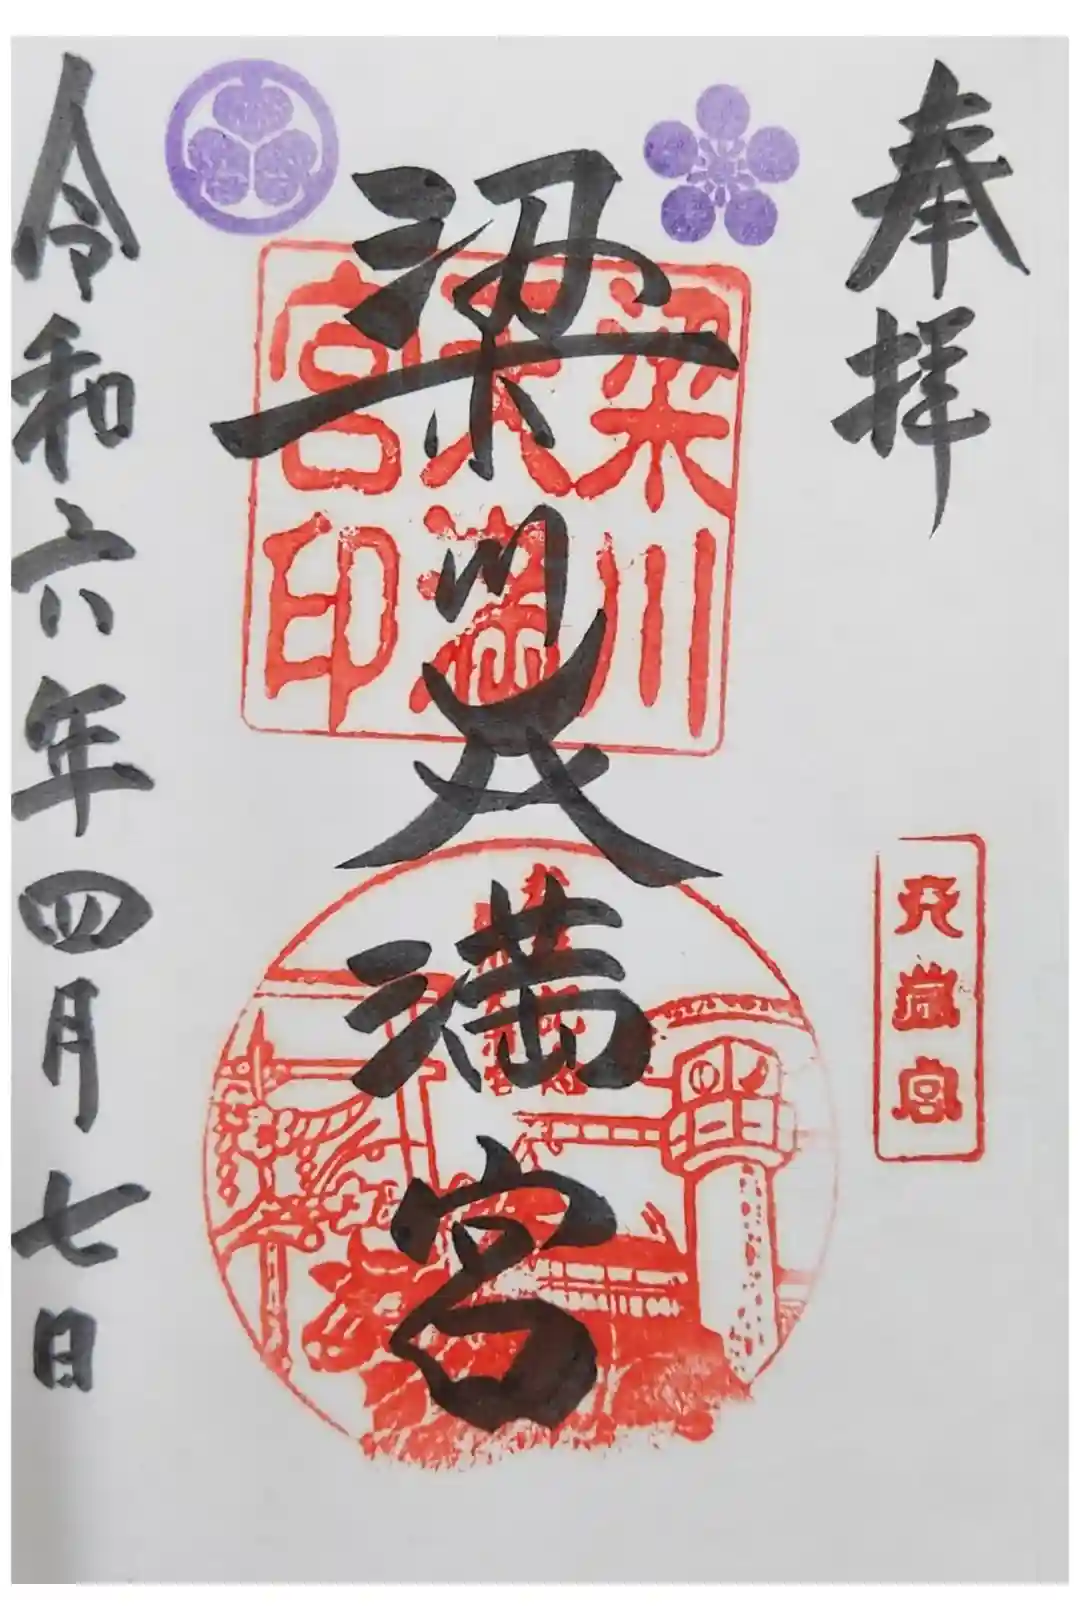 奉拝
天満宮
梁川天満宮
梁川
天満
宮印
令和六年四月七日